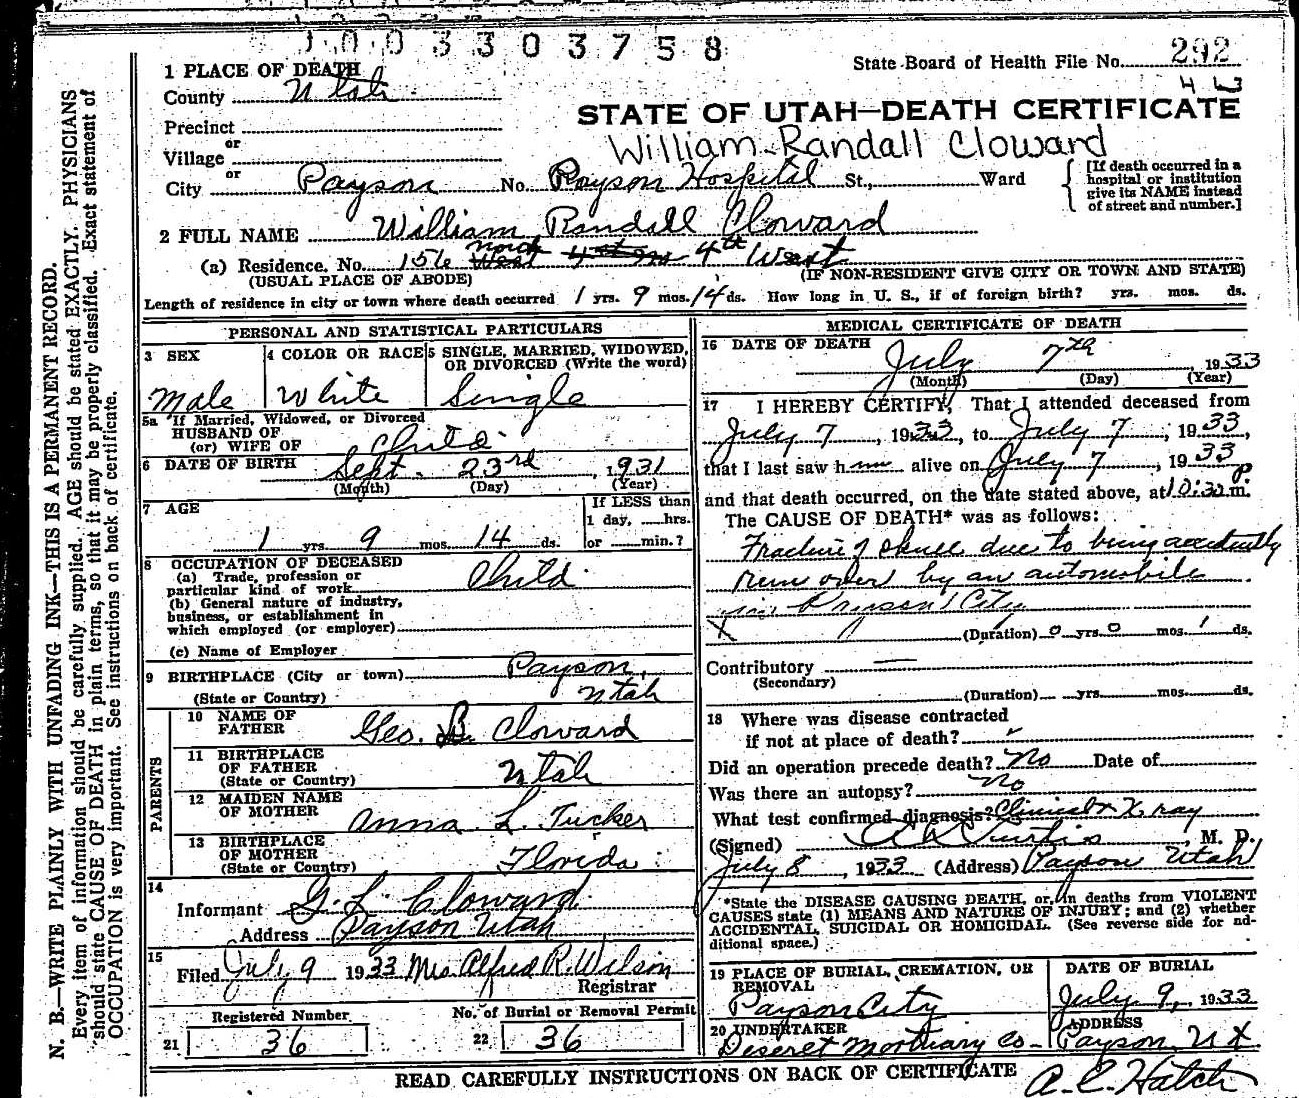 1003303758
State Board of Health File No. 292
1 PLACE OF DEATH
County Utah
STATE OF UTAH—DEATH CERTIFICATE
Precinct
or
William Randall Cloward
Village
or
City Payson No. Payson Hospital St., Ward
[If death occurred in a
hospital or institution
give its NAME instead
of street and number.]
2 FULL NAME William Randall Cloward
(a) Residence. No. 156 North 4th West
(USUAL PLACE OF ABODE) (IF NON-RESIDENT GIVE CITY OR TOWN AND STATE)
Length of residence in city or town where death occurred 1 yrs. 9 mos. 14 ds. How long in U. S., if of foreign birth? yrs. mos. ds.
PERSONAL AND STATISTICAL PARTICULARS
3 SEX 4 COLOR OR RACE 5 SINGLE, MARRIED, WIDOWED,
OR DIVORCED (Write the word)
Male White Single
5a If Married, Widowed, or Divorced
HUSBAND OF
(or) WIFE OF Child
6 DATE OF BIRTH Sept. 23rd 1931
(Month) (Day) (Year)
7 AGE If LESS than
1 day, hrs.
1 yrs. 9 mos. 14 ds. or min.?
8 OCCUPATION OF DECEASED
(a) Trade, profession or
particular kind of work Child
(b) General nature of industry,
business, or establishment in
which employed (or employer)
(c) Name of Employer
9 BIRTHPLACE (City or town) Payson,
(State or Country) Utah
PARENTS
10 NAME OF
FATHER Geo. B. Cloward
11 BIRTHPLACE
OF FATHER
(State or Country) Utah
12 MAIDEN NAME
OF MOTHER Anna L. Tucker
13 BIRTHPLACE
OF MOTHER
(State or Country) Florida
14
Informant G. L. Cloward
Address Payson Utah
15
Filed July 9 1933 Mrs. Alfred R. Wilson
Registrar
Registered Number No. of Burial or Removal Permit
21 36 22 36
MEDICAL CERTIFICATE OF DEATH
16 DATE OF DEATH
July 7th 1933
(Month) (Day) (Year)
17 I HEREBY CERTIFY, That I attended deceased from
July 7, 1933, to July 7, 1933,
that I last saw him alive on July 7, 1933
and that death occurred, on the date stated above, at 10:30 P m.
The CAUSE OF DEATH* was as follows:
Fracture of skull due to being accidentally
run over by an automobile
in Payson City
(Duration) 0 yrs. 0 mos. 1 ds.
Contributory
(Secondary)
(Duration) yrs. mos. ds.
18 Where was disease contracted
if not at place of death?
Did an operation precede death? No Date of
Was there an autopsy? No
What test confirmed diagnosis? Clinical & X ray
(Signed) Curtis, M. D.
July 8, 1933 (Address) Payson Utah
*State the DISEASE CAUSING DEATH, or, in deaths from VIOLENT
CAUSES state (1) MEANS AND NATURE OF INJURY; and (2) whether
ACCIDENTAL, SUICIDAL OR HOMICIDAL. (See reverse side for ad-
ditional space.)
19 PLACE OF BURIAL, CREMATION, OR
REMOVAL
Payson City
DATE OF BURIAL
July 9, 1933
20 UNDERTAKER
Deseret Mortuary Co-
ADDRESS
Payson, Ut.
READ CAREFULLY INSTRUCTIONS ON BACK OF CERTIFICATE
A. C. Hatch
N. B.—WRITE PLAINLY WITH UNFADING INK—THIS IS A PERMANENT RECORD.
Every item of information should be carefully supplied. AGE should be stated EXACTLY. PHYSICIANS
should state CAUSE OF DEATH in plain terms, so that it may be properly classified. Exact statement of
OCCUPATION is very important. See instructions on back of certificate.